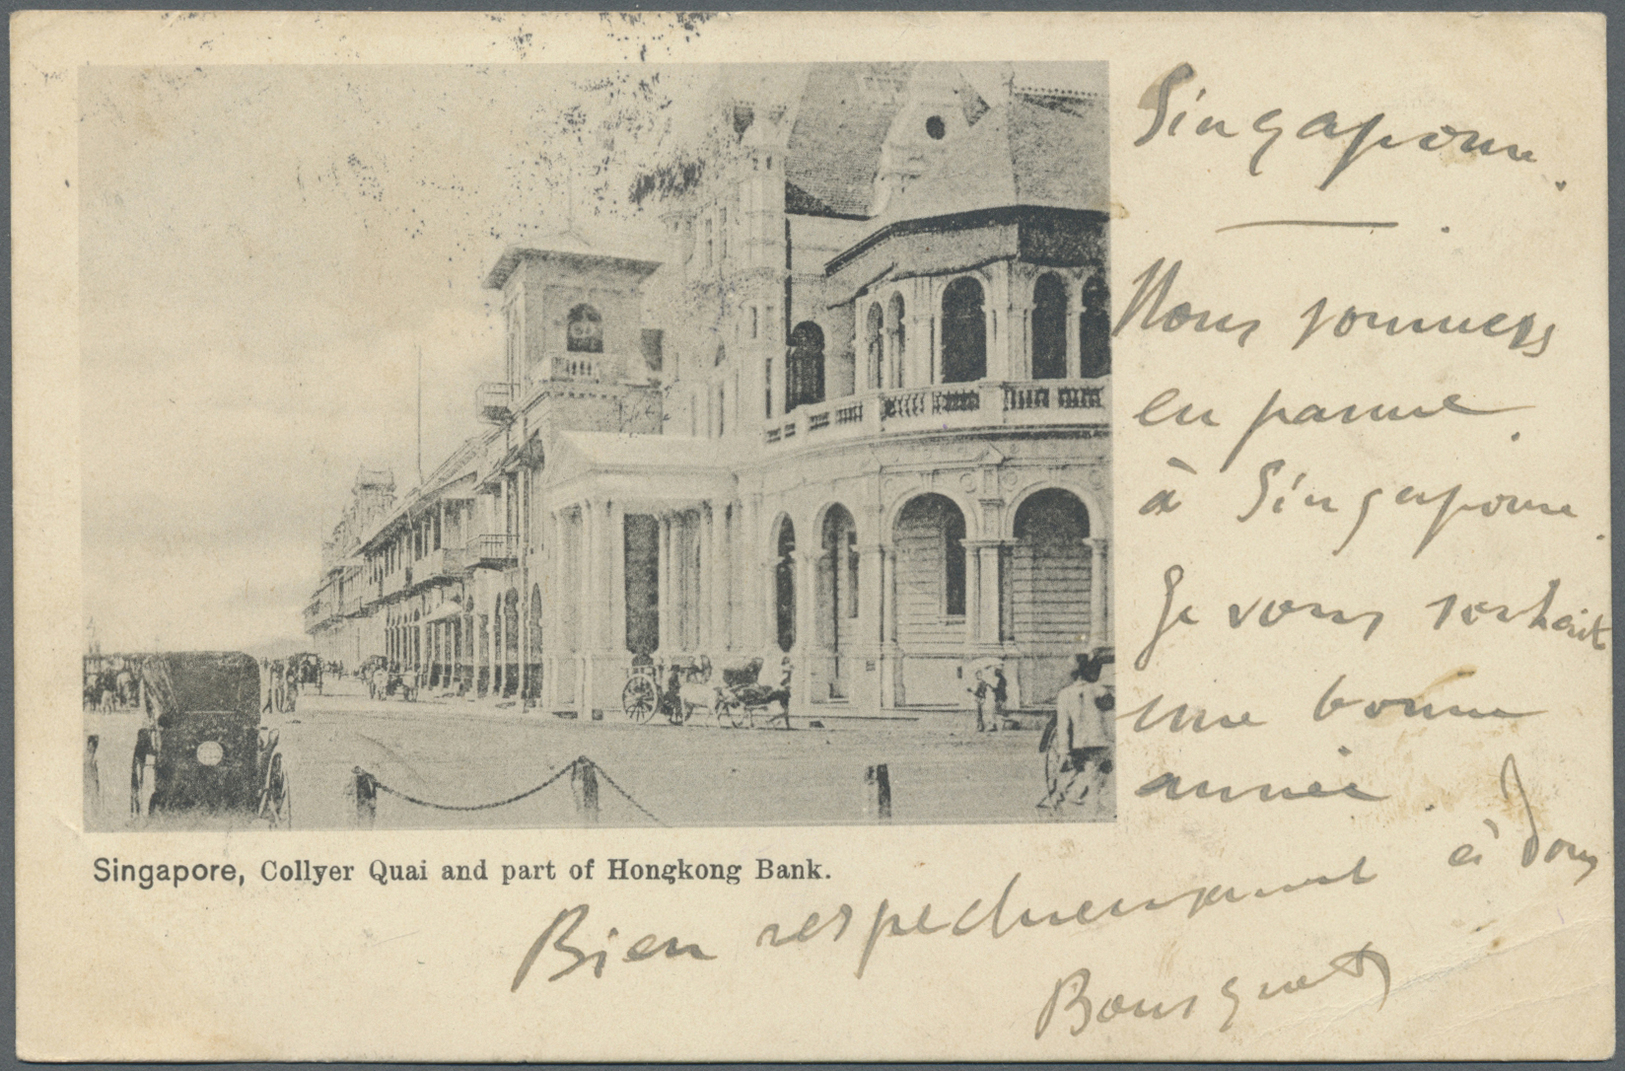 Singapour.
Nous sommes
en panne.
à Singapour.
Je vous souhait
une bonne
année.
Singapore, Collyer Quai and part of Hongkong Bank.
Bien respectueusement à vous
Bousquet